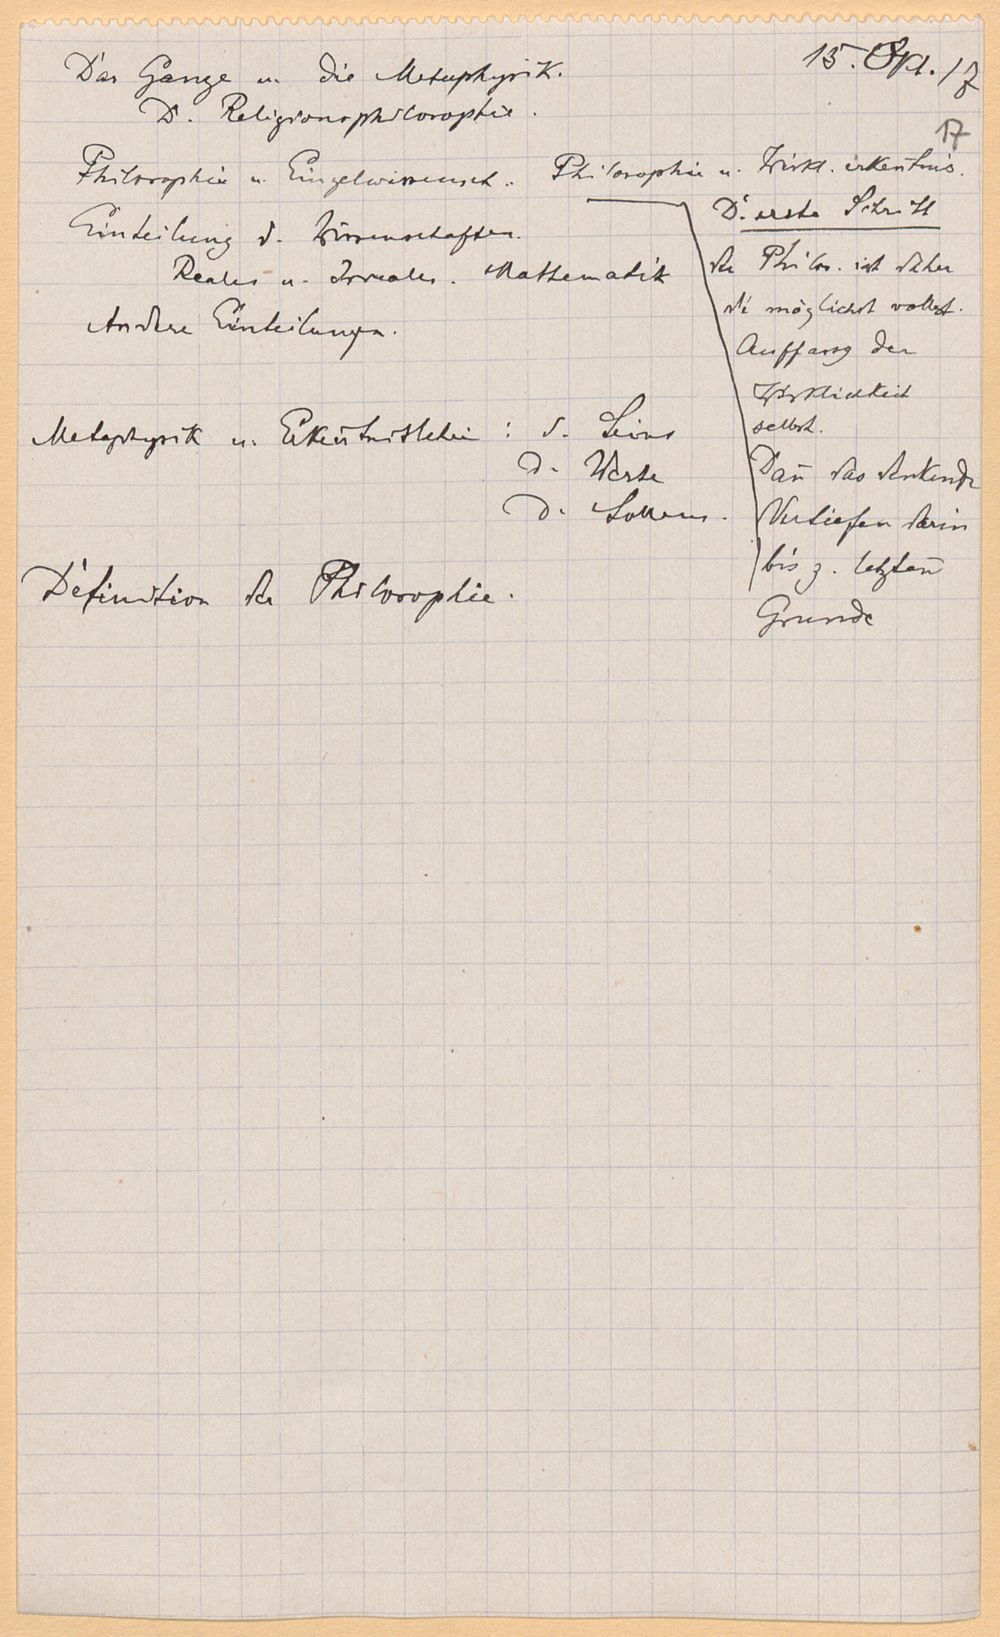 15. Okt. 17
17
Das Ganze u. die Metaphysik.
D. Religionsphilosophie.
Philosophie u. Einzelwissensch. Philosophie u. Wirkl. erkenntnis.
Einteilung d. Wissenschaften.
Reales u. Irreales. Mathematik
Andere Einteilungen.
D. erste Schritt
der Philos. ist daher
die möglichst vollst.
Auffassg der
Wirklichkeit
selbst.
Dan̄ das denkende
Vertiefen darin
bis z. letzten
Grunde
Metaphysik u. Erken̄tnistheorie : d. Seins
D. Werte
D. Sollens.
Definition der Philosophie.